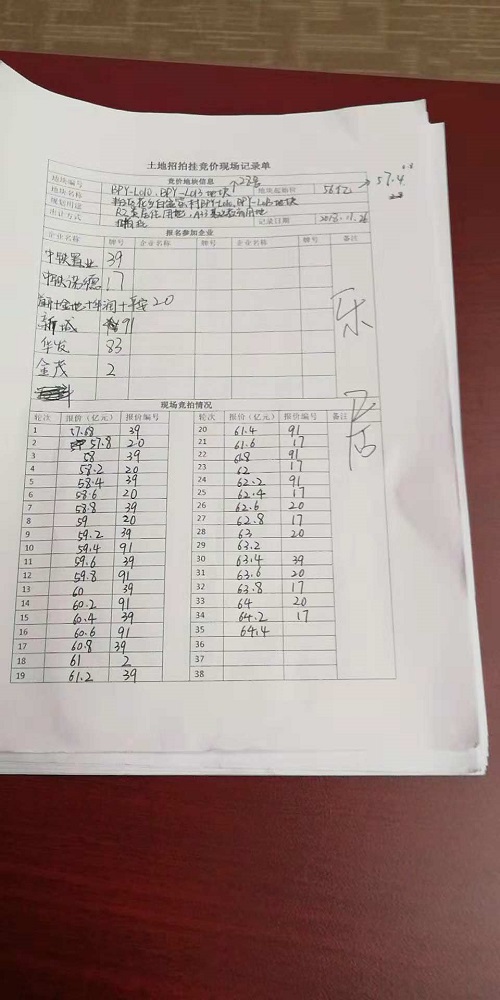 土地招拍挂竞价现场记录单
竞价地块信息
地块编号 BPY-L010、BPY-L013地块 地块起始价 56亿 → 57.4
地块名称 BPY-L010、BPY-L013地块
规划用途 R2类居住用地、A33基础教育用地
出让方式 记录日期 2018.11.26
报名参加企业
企业名称 牌号 企业名称 牌号 企业名称 牌号 备注
中铁置业 39
中铁诺德 17
首开+金地+华润+平安 20
新城 91
华发 83
金茂 2
乐居
现场竞拍情况
轮次 报价（亿元） 报价编号 轮次 报价（亿元） 报价编号 备注
1 57.68 39 20 61.4 91
2 57.8 20 21 61.6 17
3 58 39 22 61.8 91
4 58.2 20 23 62 17
5 58.4 39 24 62.2 91
6 58.6 20 25 62.4 17
7 58.8 39 26 62.6 20
8 59 20 27 62.8 17
9 59.2 39 28 63 20
10 59.4 91 29 63.2
11 59.6 39 30 63.4 39
12 59.8 91 31 63.6 20
13 60 39 32 63.8 17
14 60.2 91 33 64 20
15 60.4 39 34 64.2 17
16 60.6 91 35 64.4
17 60.8 39 36
18 61 2 37
19 61.2 39 38